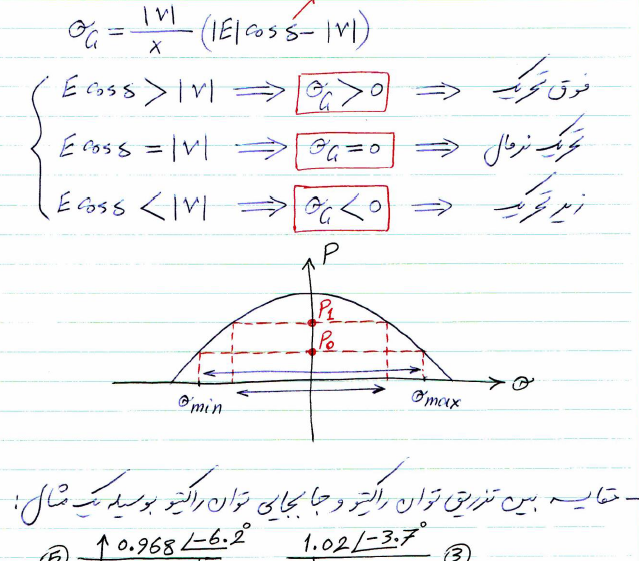 Q_G = |V|/x (|E|cosδ - |V|)
E cosδ > |V| ⟹ Q_G > 0 ⟹ فوق تحریک
E cosδ = |V| ⟹ Q_G = 0 ⟹ تحریک نرمال
E cosδ < |V| ⟹ Q_G < 0 ⟹ زیر تحریک
P
P1
P0
Q
Qmin Qmax
- مقایسه بین تزریق توان راکتیو و جابجایی توان راکتیو بوسیله یک مثال:
⑤ 0.968∠-6.2° 1.02∠-3.7° ③